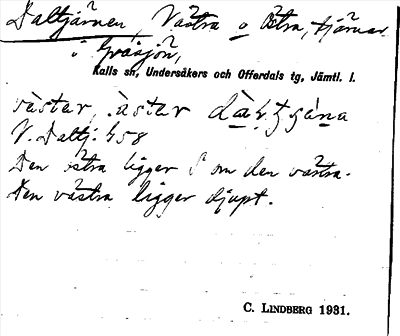 Daltjärnen, Västra o Östra, tjärnar
i Gråsjön,
Kalls sn, Undersåkers och Offerdals tg, Jämtl. l.
västar, àstar
V. Daltj. 458
Den östra ligger S om den västra.
Den västra ligger djupt.
C. LINDBERG 1931.